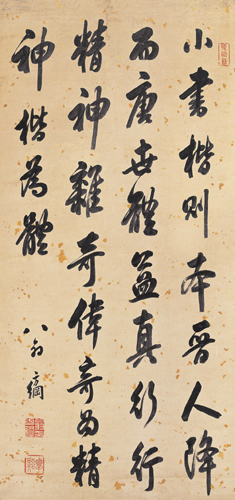 小書楷則本晉人降
而唐世體益真行行
精神奇偉奇為精
神楷為體
綱